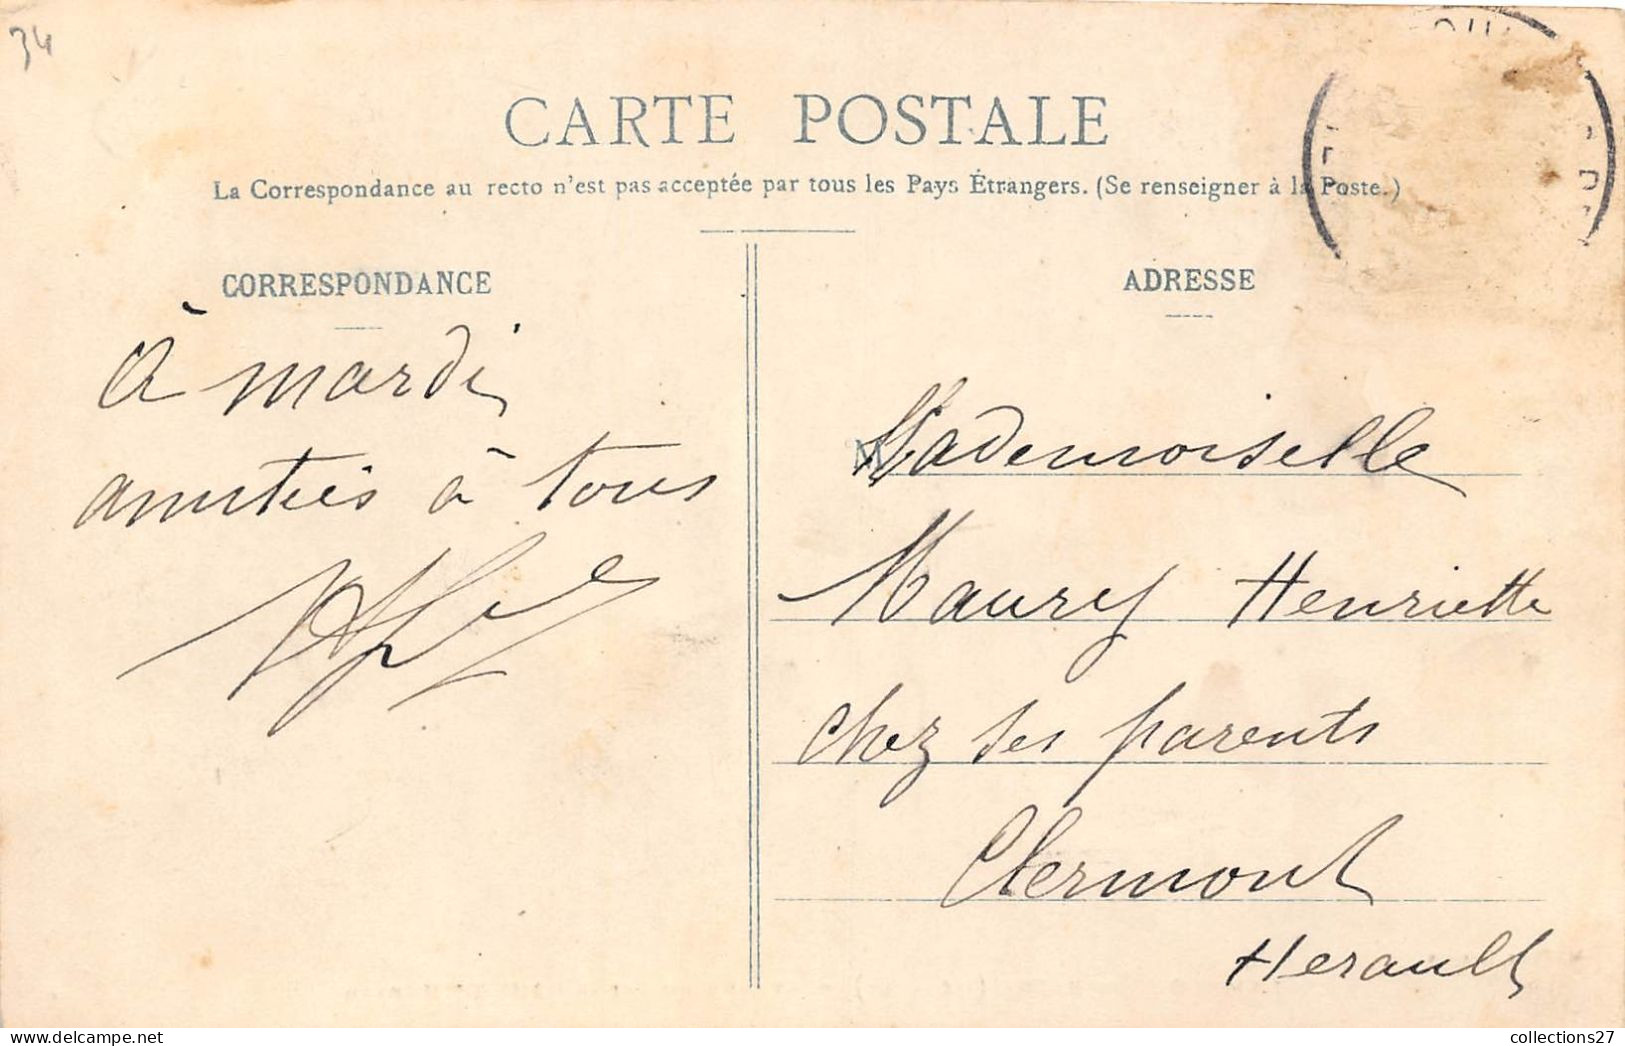 34
CARTE POSTALE
La Correspondance au recto n'est pas acceptée par tous les Pays Étrangers. (Se renseigner à la Poste.)
CORRESPONDANCE
à mardi
amitiés à tous
ADRESSE
M
Mademoiselle
Maury Henriette
chez ses parents
Clermont
Herault
collections27